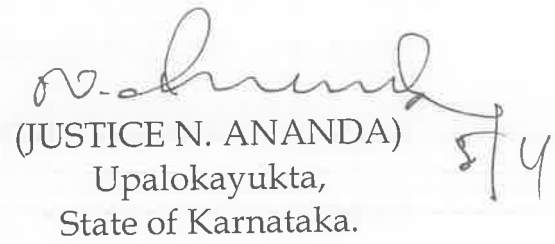 N. Ananda
(JUSTICE N. ANANDA) 5/4
Upalokayukta,
State of Karnataka.